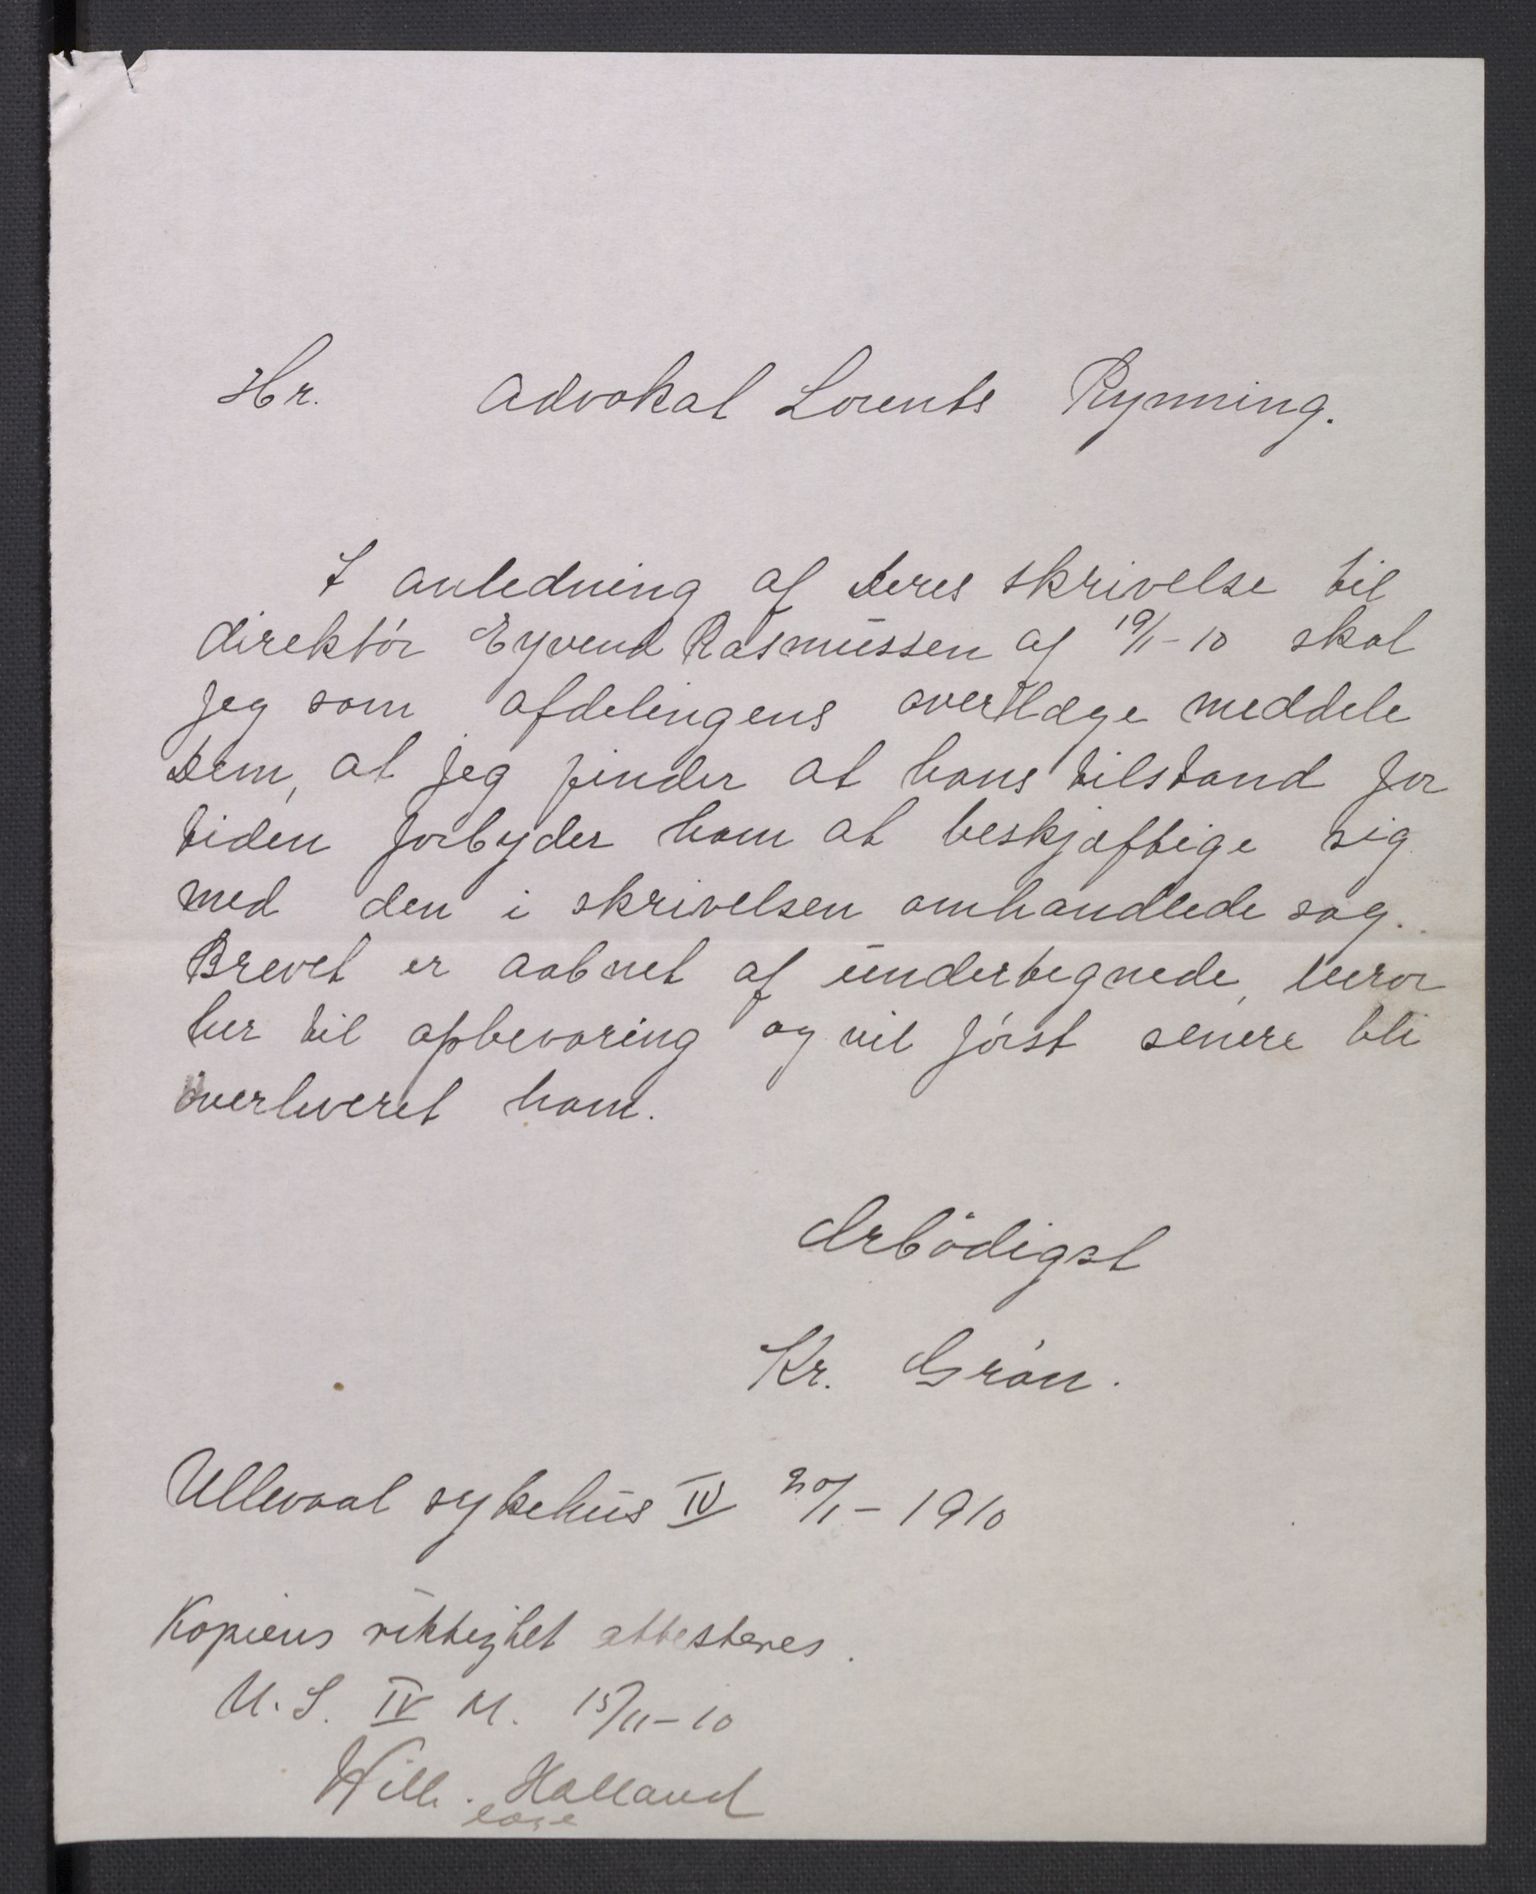 Hr. Advokat Lorents Rynning.
I anledning af Deres skrivelse til
direktør Eyvend Rasmussen af 19/1-10 skal
jeg som afdelingens overlæge meddele
Dem, at jeg finder at hans tilstand for
tiden forbyder ham at beskjæftige sig
med den i skrivelsen omhandlede sag.
Brevet er aabnet af undertegnede, beror
her til opbevaring og vil først senere bli
overleveret ham.
Ærbødigst
Kr. Grøn.
Ullevaal sykehus IV 20/1-1910
Kopiens riktighet attesteres.
U. S. IV M. 15/11-10
Wilh. Holland
læge